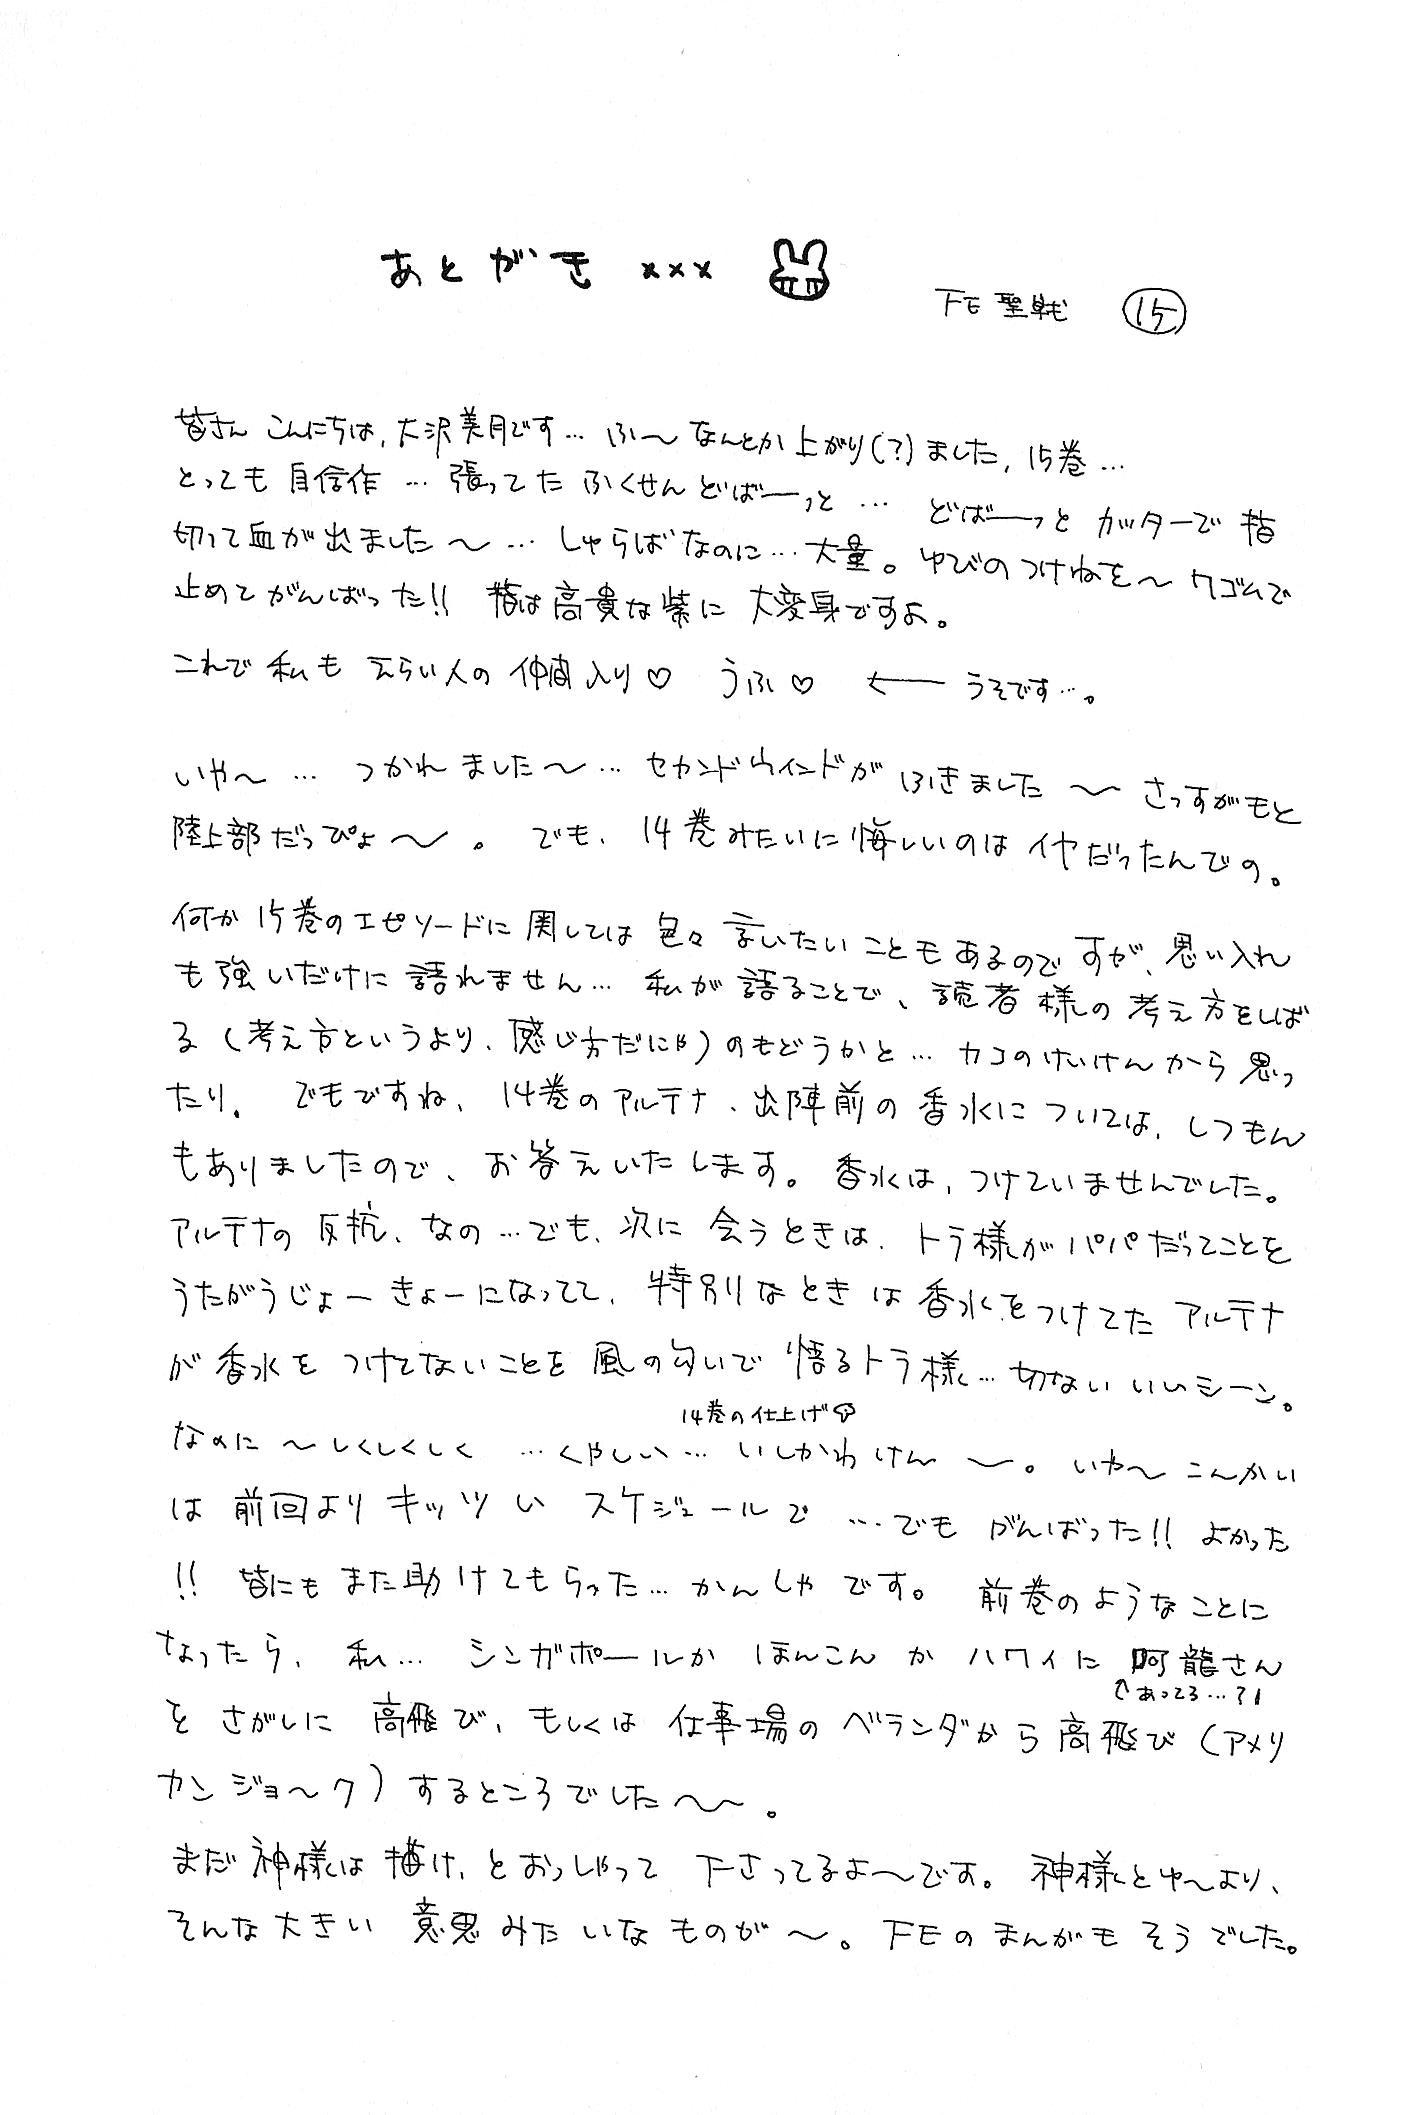 あとがき ×××
FE聖戦 ⑮
皆さん こんにちは, 大沢美月です… ふ〜 なんとか上がり(?)ました, 15巻…
とっても 自信作 … 張ってた ふくせん どばーっと … どばーっと カッターで 指
切って血が出ました〜 … しゅらばなのに… 大量。 ゆびのつけねを〜 ワゴムで
止めてがんばった!! 指は高貴な紫に 大変身ですよ。
これで 私も えらい人の 仲間入り♡ うふ♡ ← うそです…。
いや〜 … つかれました〜 … セカンドウインドが ふきました 〜 さっすがもと
陸上部だっぴょ〜。 でも、14巻みたいに悔しいのはイヤだったんでの。
何か 15巻のエピソードに関しては 色々 言いたいこともあるのですが、思い入れ
も強いだけに 語れません… 私が 語ることで、読者様の考え方をしば
る (考え方というより、感じ方だにゃ) のもどうかと… カコのけいけんから 思っ
たり。 でもですね、14巻のアルテナ、出陣前の香水については, しつもん
もありましたので、お答えいたします。香水は, つけていませんでした。
アルテナの 反抗、なの…でも、次に 会うときは、トラ様がパパだってことを
うたがうじょーきょーになってて、特別なときは香水をつけてた アルテナ
が香水を つけてないことを 風の匂いで 悟るトラ様… 切ない いいシーン。
14巻の仕上げ
なのに 〜しくしくしく …くやしい… いしかわけん 〜。 いや〜 こんかい
は 前回より キッツい スケジュールで …でも がんばった!! よかった
!! 皆にも また助けてもらった… かんしゃです。 前巻のようなことに
なったら、私… シンガポールか ほんこん か ハワイに 阿龍さん
↑あってる…?!
を さがしに 高飛び、もしくは 仕事場の ベランダから 高飛び (アメリ
カンジョ〜ク) するところでした〜〜。
まだ 神様は 描け、とおっしゃって 下さってるよ〜です。神様とゆ〜より、
そんな大きい 意思みたいなものが〜。FEのまんがもそうでした。